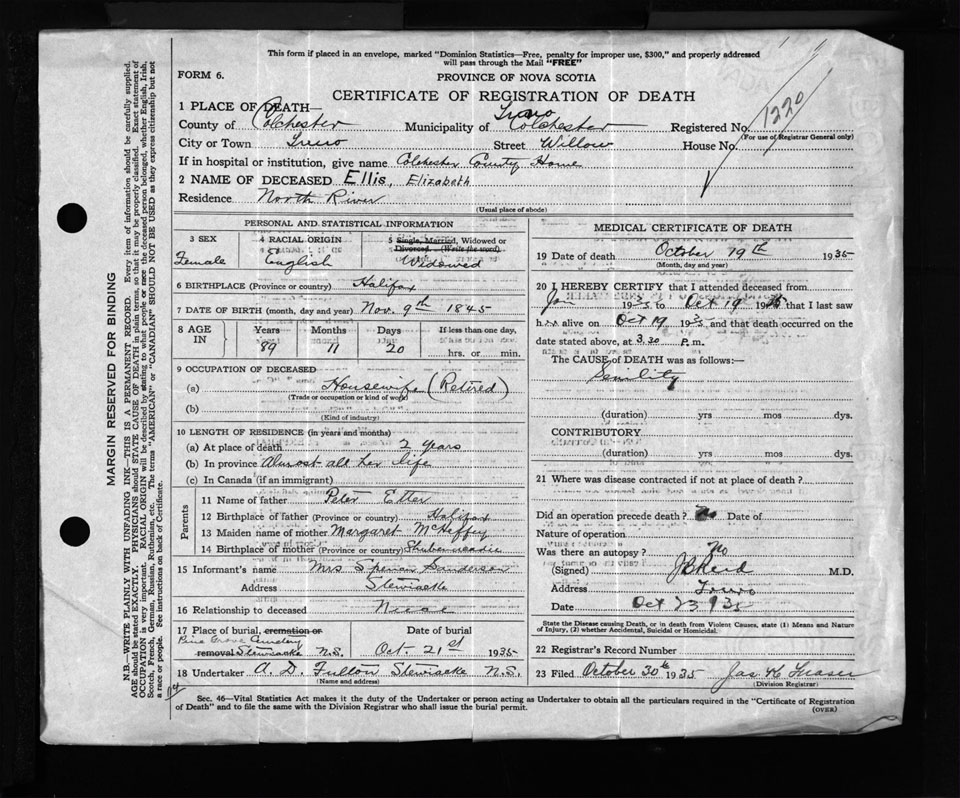 This form if placed in an envelope, marked "Dominion Statistics—Free, penalty for improper use, $300," and properly addressed
will pass through the Mail "FREE"
FORM 6.
PROVINCE OF NOVA SCOTIA
CERTIFICATE OF REGISTRATION OF DEATH
1220
1 PLACE OF DEATH—
Truro
County of Colchester Municipality of Colchester Registered No.
(For use of Registrar General only)
City or Town Truro Street Willow House No.
If in hospital or institution, give name Colchester County Home
2 NAME OF DECEASED Ellis, Elizabeth
Residence North River
(Usual place of abode)
PERSONAL AND STATISTICAL INFORMATION
3 SEX 4 RACIAL ORIGIN 5 Single, Married, Widowed or
Divorced. (Write the word)
Female English Widowed
6 BIRTHPLACE (Province or country) Halifax
7 DATE OF BIRTH (month, day and year) Nov. 9th 1845
8 AGE IN Years Months Days If less than one day,
89 11 20 hrs. or min.
9 OCCUPATION OF DECEASED
(a) Housewife (Retired)
(Trade or occupation or kind of work)
(b)
(Kind of industry)
10 LENGTH OF RESIDENCE (in years and months)
(a) At place of death 2 years
(b) In province Almost all her life
(c) In Canada (if an immigrant)
Parents
11 Name of father Peter Etter
12 Birthplace of father (Province or country) Halifax
13 Maiden name of mother Margaret McHeffey
14 Birthplace of mother (Province or country) Shubenacadie
15 Informant's name Mrs Sanderson
Address Stewiacke
16 Relationship to deceased Niece
17 Place of burial, cremation or
removal Pine Grove Cemetery
Stewiacke N.S.
Date of burial
Oct. 21st 1935
18 Undertaker A. D. Fulton Stewiacke N.S.
(Name and address)
MEDICAL CERTIFICATE OF DEATH
19 Date of death October 19th 1935
(Month, day and year)
20 I HEREBY CERTIFY that I attended deceased from
Jan 1935 to Oct 19 1935 that I last saw
her alive on Oct 19 1935 and that death occurred on
date stated above, at 3.20 P. m.
The CAUSE of DEATH was as follows:—
Senility
(duration) yrs mos dys.
CONTRIBUTORY
(duration) yrs mos dys.
21 Where was disease contracted if not at place of death?
Did an operation precede death? No Date of
Nature of operation
Was there an autopsy? No
(Signed) J B Reid M.D.
Address Truro
Date Oct 23 1935
State the Disease causing Death, or in death from Violent Causes, state (1) Means and Nature
of Injury, (2) whether Accidental, Suicidal or Homicidal.
22 Registrar's Record Number
23 Filed October 30th 1935 Jas H Fraser
(Division Registrar)
Sec. 46—Vital Statistics Act makes it the duty of the Undertaker or person acting as Undertaker to obtain all the particulars required in the "Certificate of Registration
of Death" and to file the same with the Division Registrar who shall issue the burial permit.
(OVER)
MARGIN RESERVED FOR BINDING
N.B.—WRITE PLAINLY WITH UNFADING INK—THIS IS A PERMANENT RECORD. Every item of information should be carefully supplied.
AGE should be stated EXACTLY. PHYSICIANS should STATE CAUSE OF DEATH in plain terms, so that it may be properly classified. Exact statement of
OCCUPATION is very important. RACIAL ORIGIN will be described by stating to what people or race the deceased person belonged, whether English, Irish,
Scotch, French, German, Russian, Ruthenian, etc. The terms "AMERICAN" or "CANADIAN" SHOULD NOT BE USED as they express citizenship but not
a race or people. See instructions on back of Certificate.